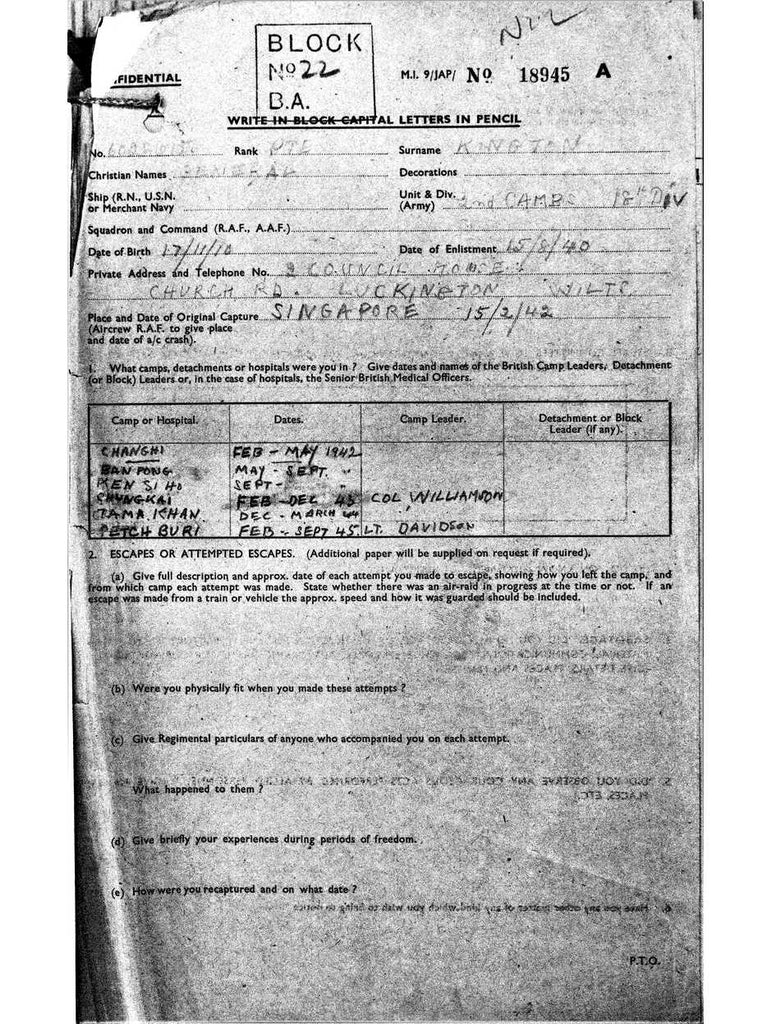 NIL
BLOCK
No 22
B.A.
FIDENTIAL
M.I. 9/JAP/ No. 18945 A
WRITE IN BLOCK CAPITAL LETTERS IN PENCIL
No. Rank PTE Surname KINGTON
Christian Names Decorations
Ship (R.N., U.S.N. or Merchant Navy
Unit & Div. (Army) 2nd CAMBS 18th DIV
Squadron and Command (R.A.F., A.A.F.)
Date of Birth 17/11/10 Date of Enlistment 15/8/40
Private Address and Telephone No. 2 COUNCIL HOUSE
CHURCH RD. LUCKINGTON WILTS
Place and Date of Original Capture SINGAPORE 15/2/42
(Aircrew R.A.F. to give place
and date of a/c crash).
1. What camps, detachments or hospitals were you in ? Give dates and names of the British Camp Leaders, Detachment
(or Block) Leaders or, in the case of hospitals, the Senior British Medical Officers.
Camp or Hospital. Dates. Camp Leader. Detachment or Block Leader (if any).
CHANGHI FEB - MAY 1942
BAN PONG MAY - SEPT. "
KEN SI HO SEPT -
CHUNGKAI FEB - DEC 43 COL WILLIAMSON
TAMA KHAN DEC - MARCH 44
PETCH BURI FEB - SEPT 45 LT. DAVIDSON
2. ESCAPES OR ATTEMPTED ESCAPES. (Additional paper will be supplied on request if required).
(a) Give full description and approx. date of each attempt you made to escape, showing how you left the camp, and
from which camp each attempt was made. State whether there was an air-raid in progress at the time or not. If an
escape was made from a train or vehicle the approx. speed and how it was guarded should be included.
(b) Were you physically fit when you made these attempts ?
(c) Give Regimental particulars of anyone who accompanied you on each attempt.
What happened to them ?
(d) Give briefly your experiences during periods of freedom.
(e) How were you recaptured and on what date ?
P.T.O.